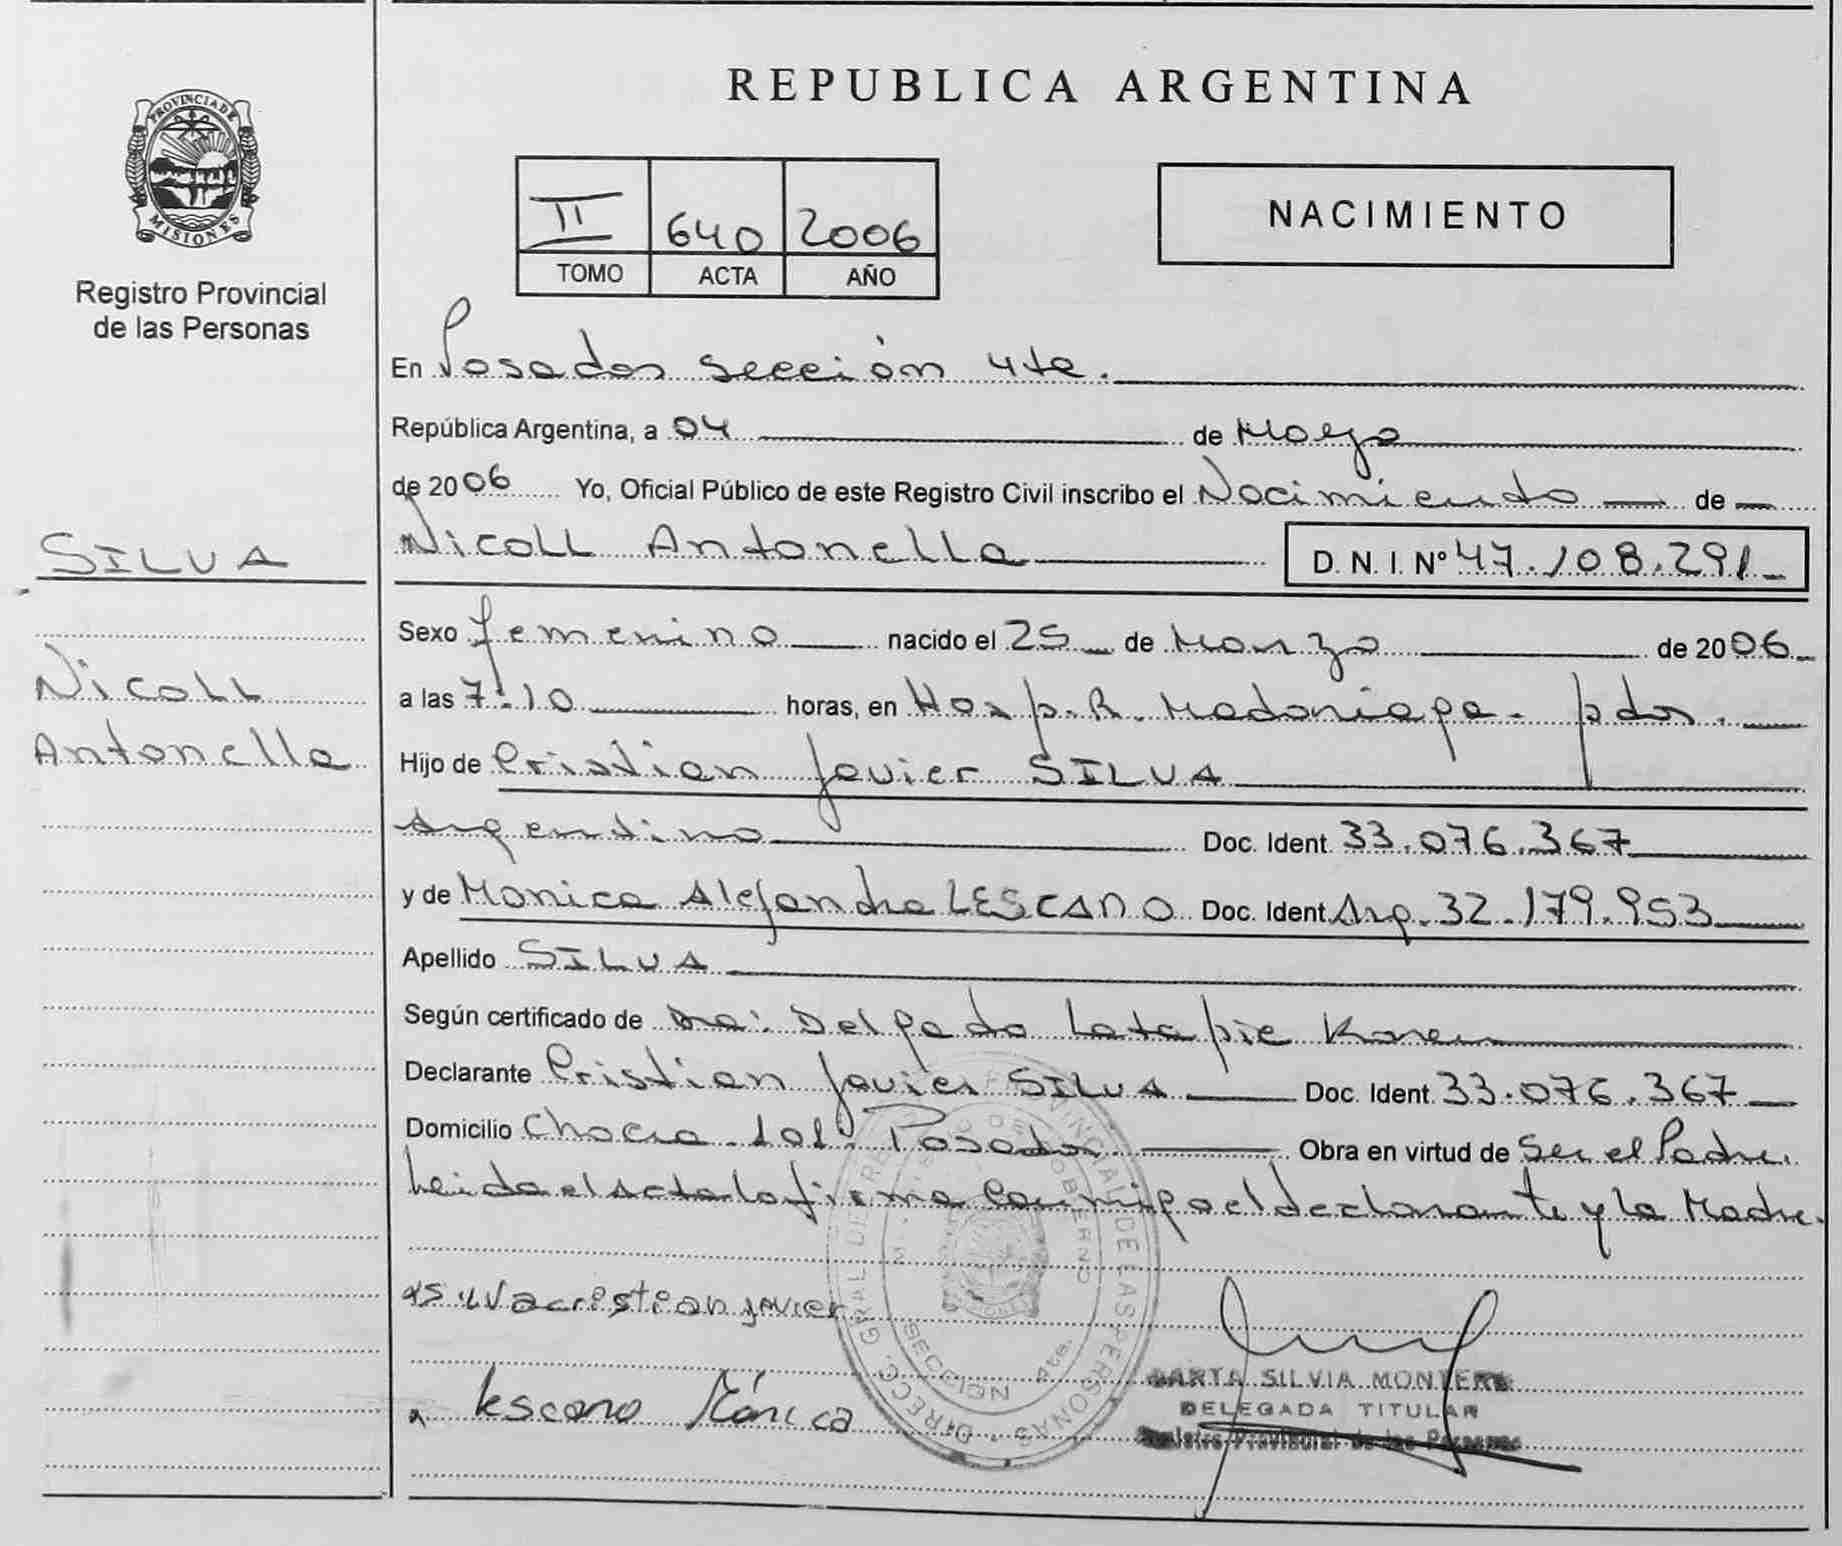 PROVINCIA DE
MISIONES
Registro Provincial
de las Personas
SILVA
Nicoll
Antonella
REPUBLICA ARGENTINA
II 640 2006
TOMO ACTA AÑO
NACIMIENTO
En Posadas sección 4ta.
República Argentina, a 04 de Mayo
de 2006 Yo, Oficial Público de este Registro Civil inscribo el Nacimiento de
Nicoll Antonella D. N. I. Nº 47.108.291
Sexo femenino nacido el 25 de Marzo de 2006
a las 7.10 horas, en Hosp. R. Madariaga. pdas.
Hijo de Cristian Javier SILVA
Argentino Doc. Ident. 33.076.367
y de Monica Alejandra LESCANO Doc. Ident. Arg. 32.179.953
Apellido SILVA
Según certificado de Dra: Delgado Latapie Karen
Declarante Cristian Javier SILVA Doc. Ident. 33.076.367
Domicilio Chacra 101. Posadas Obra en virtud de Ser el Padre.
Leida el Acta la firma conmigo el declarante y la Madre.
silva cristian javier
Lescano Mónica
MARTA SILVIA MONTERO
DELEGADA TITULAR
Registro Provincial de las Personas
DIRECC. GRAL. DE REG. PROVINCIAL DE LAS PERSONAS
SECCION 4ta.